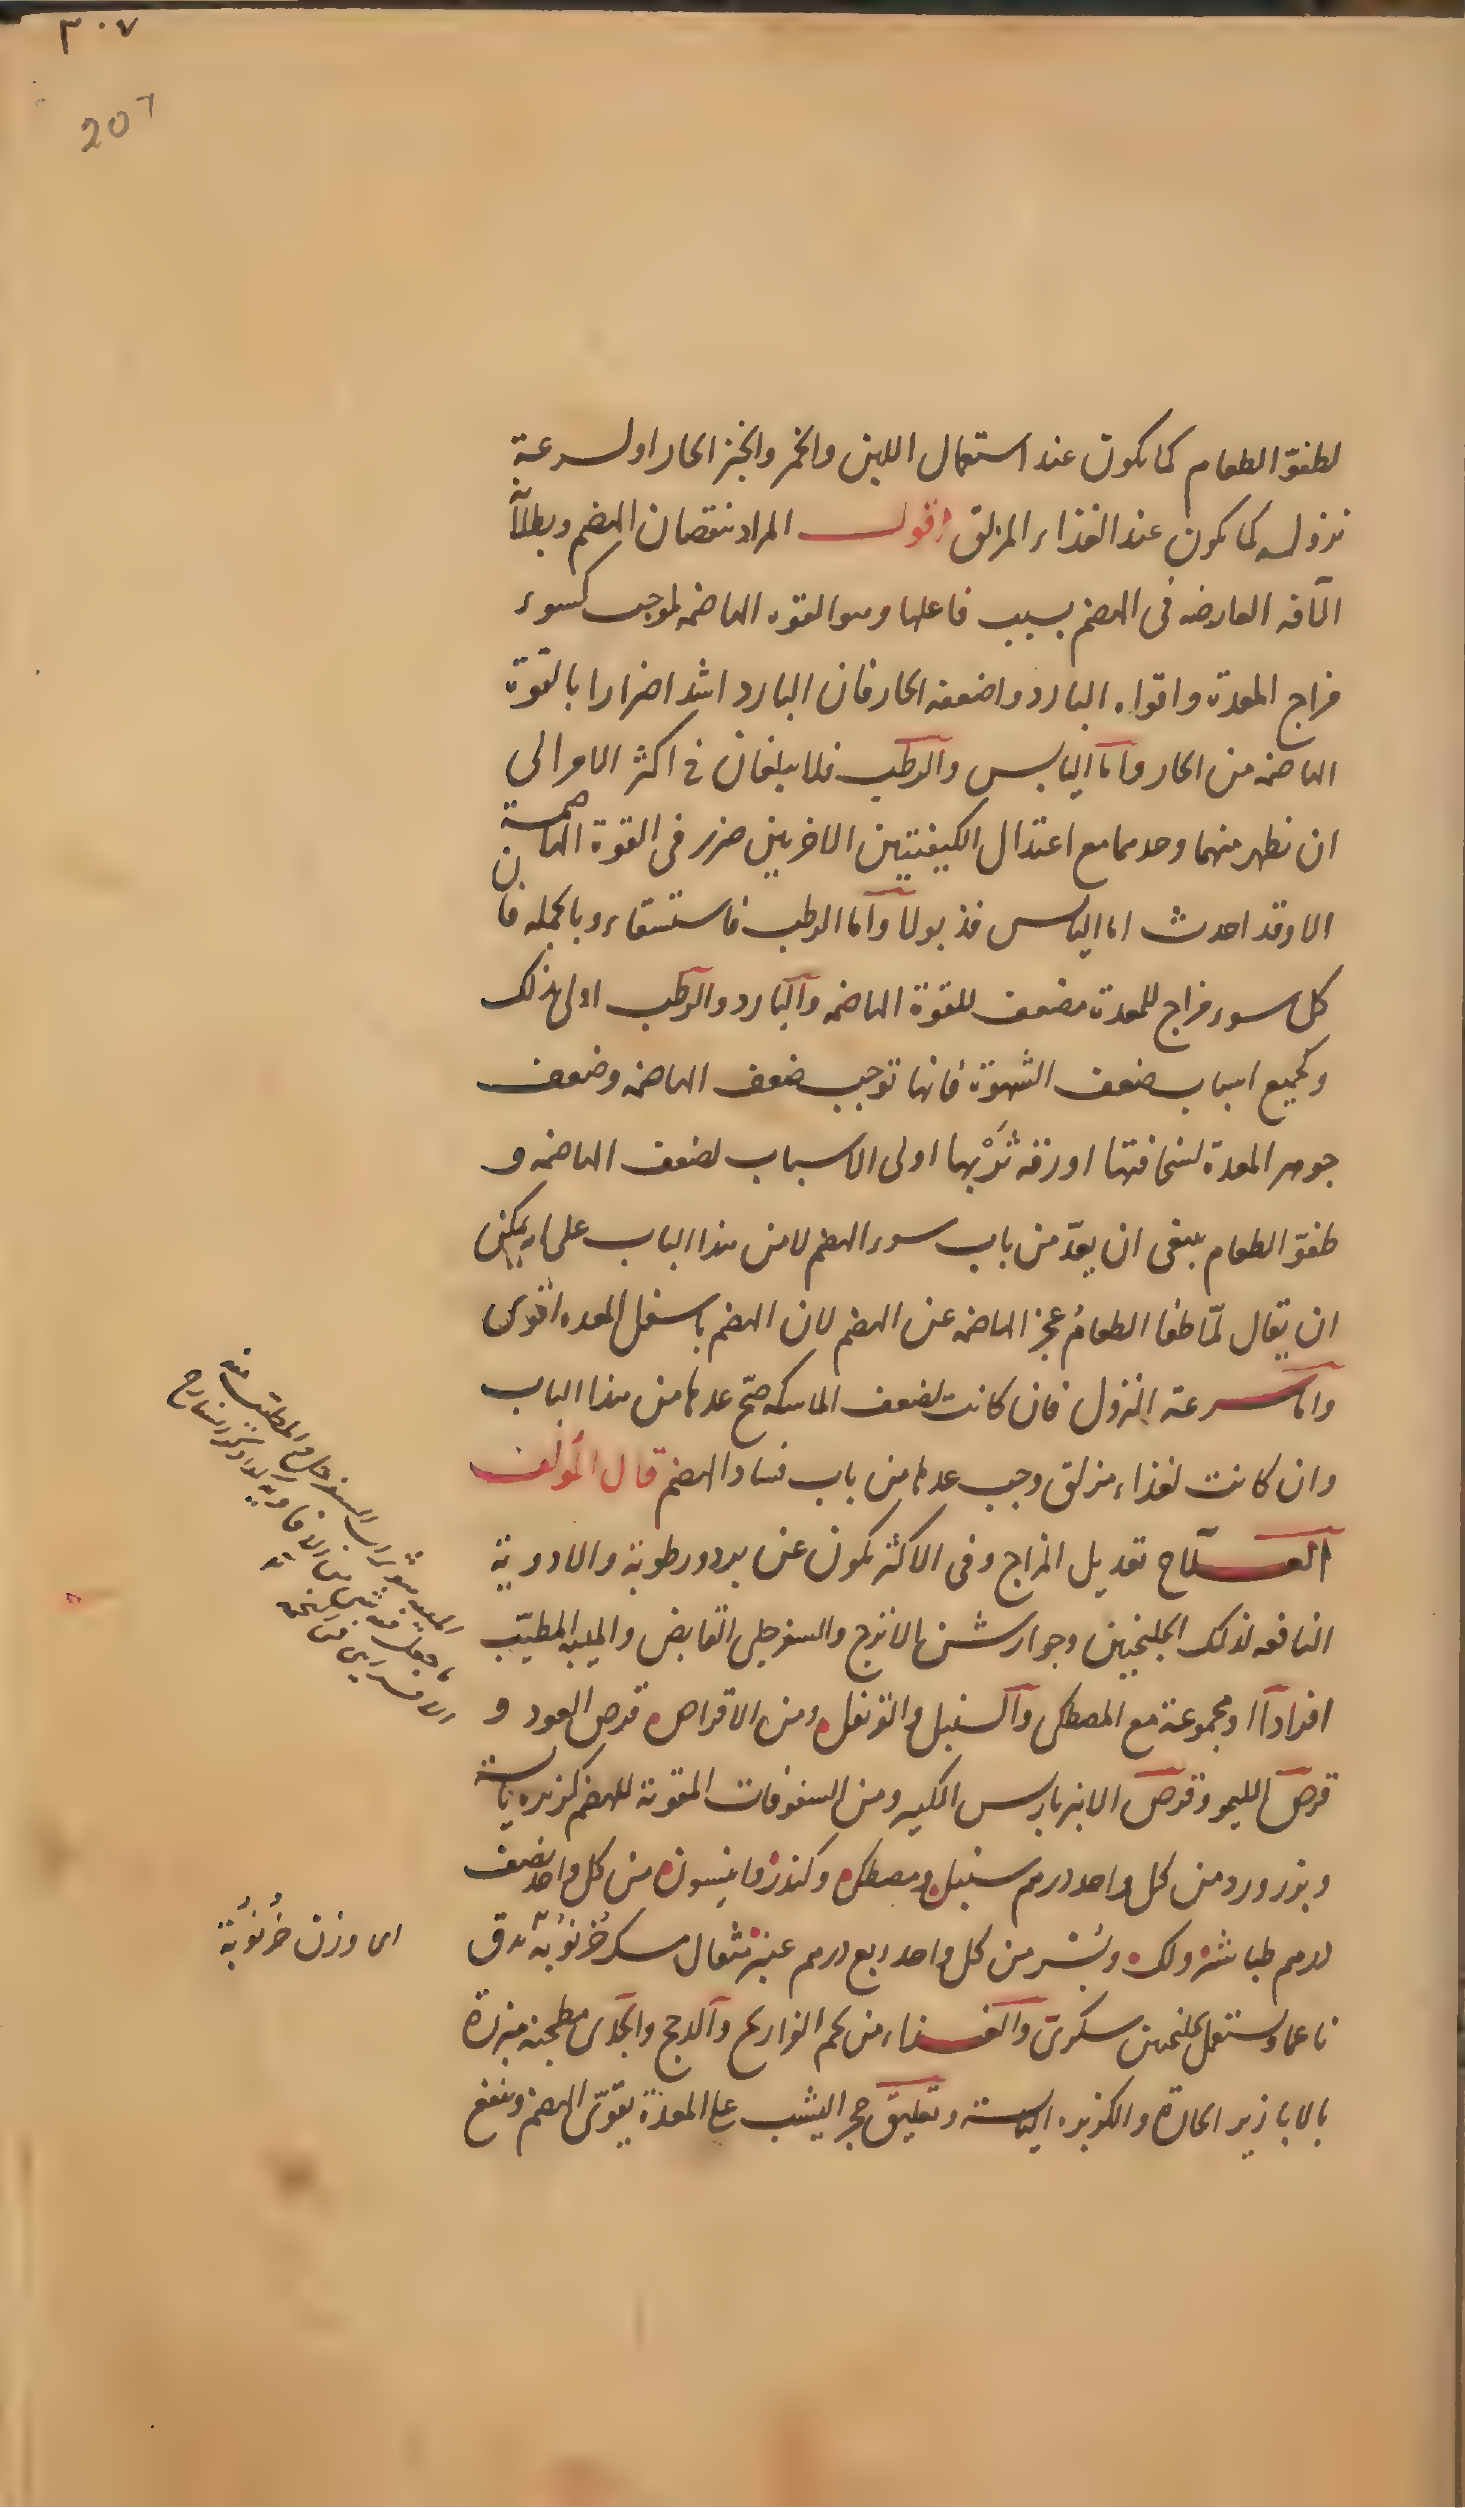 ٣٠٧
207
لطفوّ الطعام كما يكون عند استعمال اللبن والخمر والخبز الحار او لسرعة
نزوله كما يكون عند الغذاء المزلق اقول المراد بنقصان الهضم وبطلانه
الآفه العارضه فى الهضم بسبب فاعلها وهو القوه الهاضمه لموجب كسوء
مزاج المعدة واقواه البارد واضعفه الحار فان البارد اشد اضرارا بالقوة
الهاضمه من الحار وآما اليابس والرطب فلا يبلغان فى اكثر الامر الى
ان نظهر منهما وحدهما مع اعتدال الكيفيتين الاخريين ضرر فى القوة الهاضمة
الا وقد احدث اما اليابس فذبولا وآما الرطب فاستسقاء وبالجمله فان
كل سوء مزاج للمعدة مضعف للقوة الهاضمه والبارد والرطب اولى بذلك
وكجميع اسباب ضعف الشهوة فانها توجب ضعف الهاضمه وضعف
جوهر المعدة لسخافتها او رقه ثَرْبها اولى الاسباب لضعف الهاضمه و
طفوّ الطعام ينبغى ان يعدّ من باب سوء الهضم لا من هذا الباب على انه يمكن
ان يقال لمّا طفا الطعامُ عجز الهاضمه عن الهضم لان الهضم باسفل المعده اقوى
وآما سرعة النزول فان كانت لضعف الماسكه صحّ عدها من هذا الباب
وان كانت لغذاء مزلق وجب عدها من باب فساد الهضم قال المؤلف
العلاج تعديل المزاج وفى الاكثر يكون عن برد ورطوبة والادوية
النافعه لذلك الجلنجبين وجوارشن الاترج والسفرجلى القابض والميبه المطيّب
افرادآ او مجموعة مع المصطكى والسنبل والقرنفل ومن الاقراص قرص العود و
قرص الليمو وقرص الانبرباريس الكبير ومن السفوفات المقوية للهضم كزبره يابسة
وبزر ورد من كل واحد درهم سنبل ومصطكى وكندر وانيسون من كل واحد نصف
درهم طباشير ولك وبُسْر من كل واحد ربع درهم عنبر مثقال مسك خُرنُوبَة يدق
ناعما ويستعمل بجلنجبين سكرى والغذاء من لحم الفراريج والدجج والجدى مطجنه مبزرة
بالابازير الحارة والكزبره اليابسة وتعليق حجر اليشب على المعدة يقوّى الهضم وينفع
الميبه هو شراب السفرجل والمطيب منه
ما جعل فيه شئ من الافاويه
اى وزن خُرنُوبَة